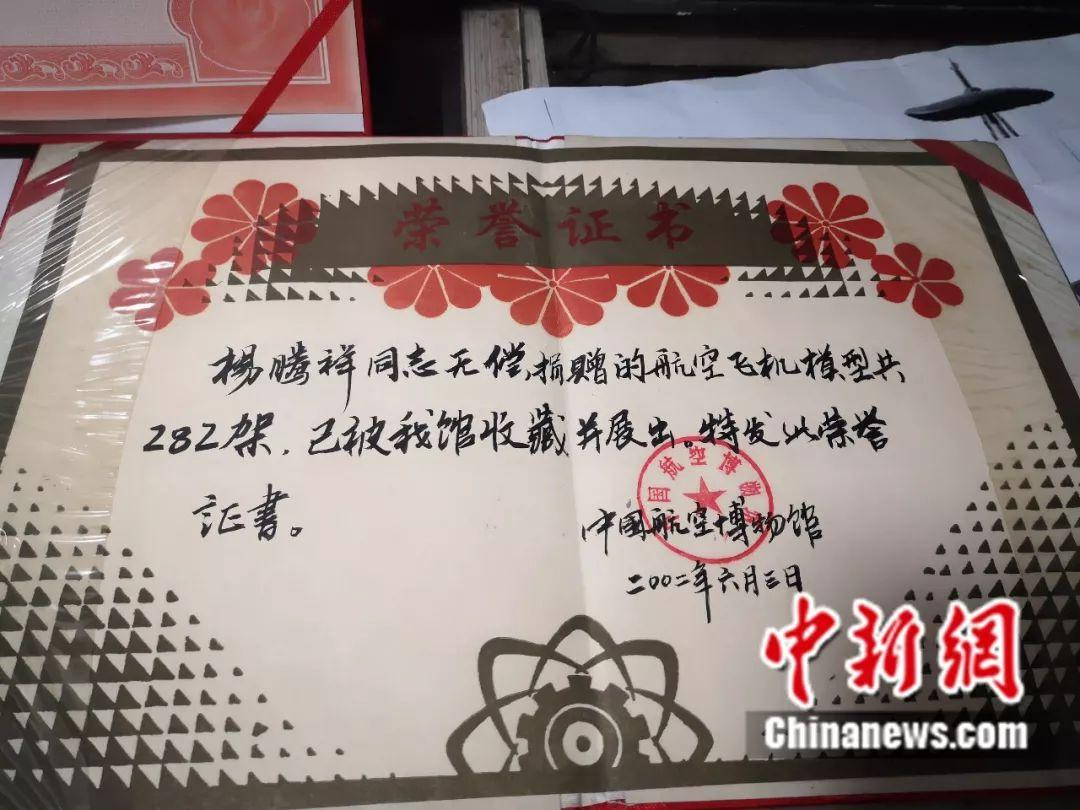 荣誉证书
楊騰祥同志无偿捐赠的航空飞机模型共
282架，已被我馆收藏并展出。特发此荣誉
证書。
中国航空博物馆
中国航空博物馆
二〇〇二年六月三日
中新網
Chinanews.com